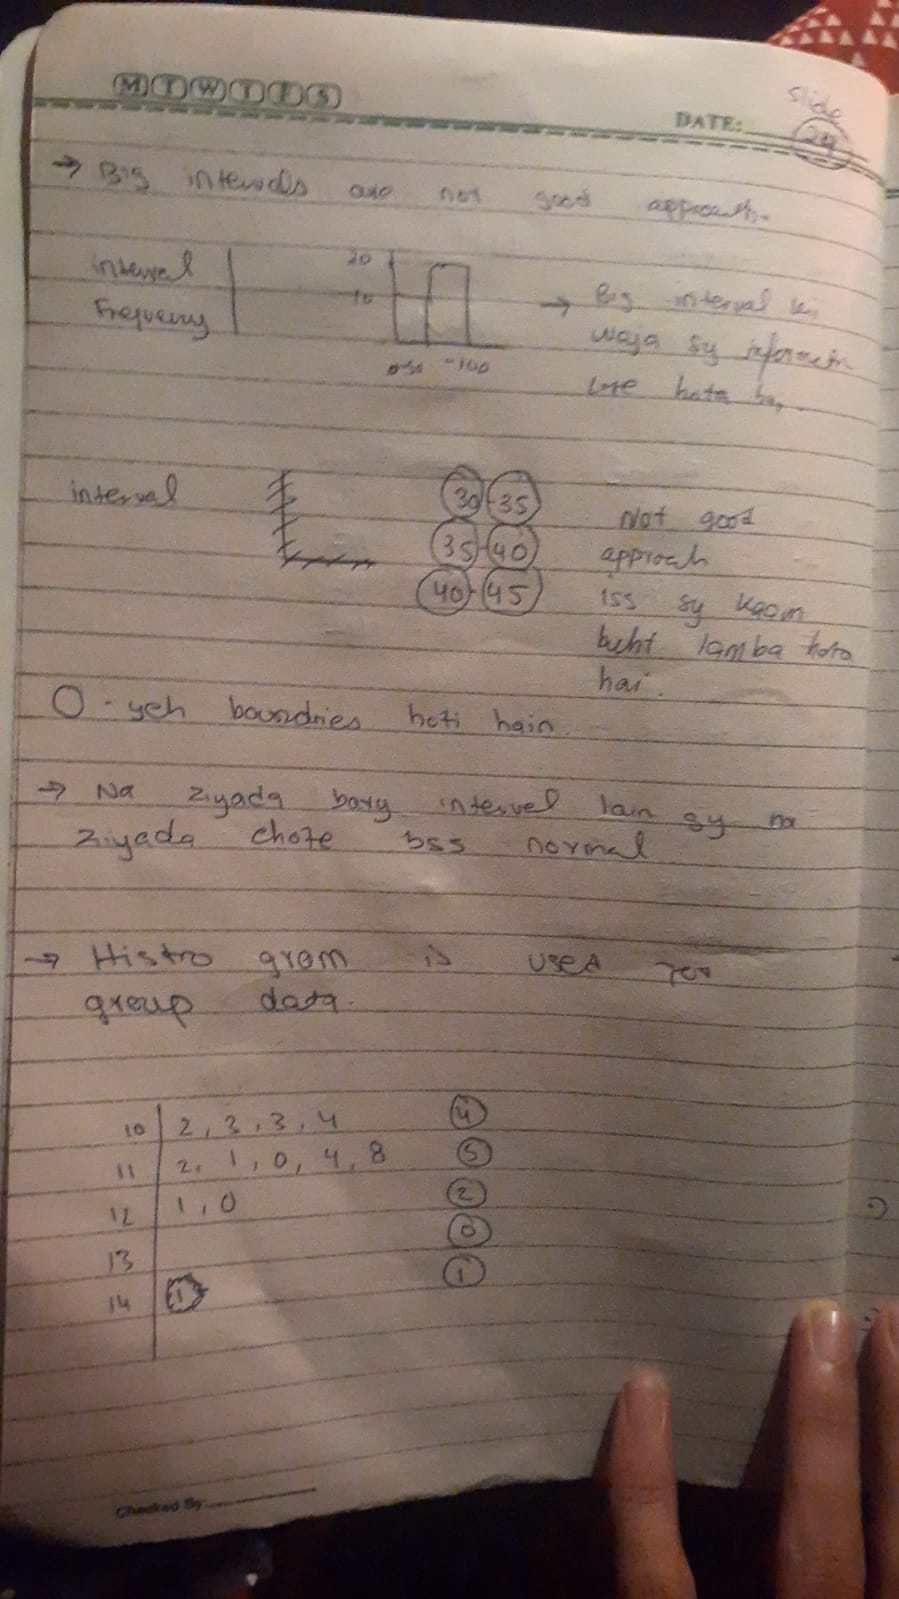 M T W T F S
Slide
DATE: 29
→ Big intervals are not good approach.
Interval
Frequency
20
10
0-50 -100
→ Big interval ki
waja sy information
lose hota hai.
interval
30-35
35-40
40-45
Not good
approch
iss sy kaam
buht lamba hota
hai.
O - yeh boundries hoti hain.
→ Na ziyada bary intervel lain gy na
ziyada chote bss normal
→ Histro gram is used for
group data.
10 | 2, 3, 3, 4 (4)
11 | 2, 1, 0, 4, 8 (5)
12 | 1, 0 (2)
13 | (0)
14 | 1 (1)
Checked By: